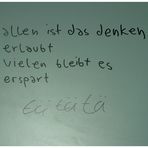 allen ist das denken
erlaubt
vielen bleibt es
erspart